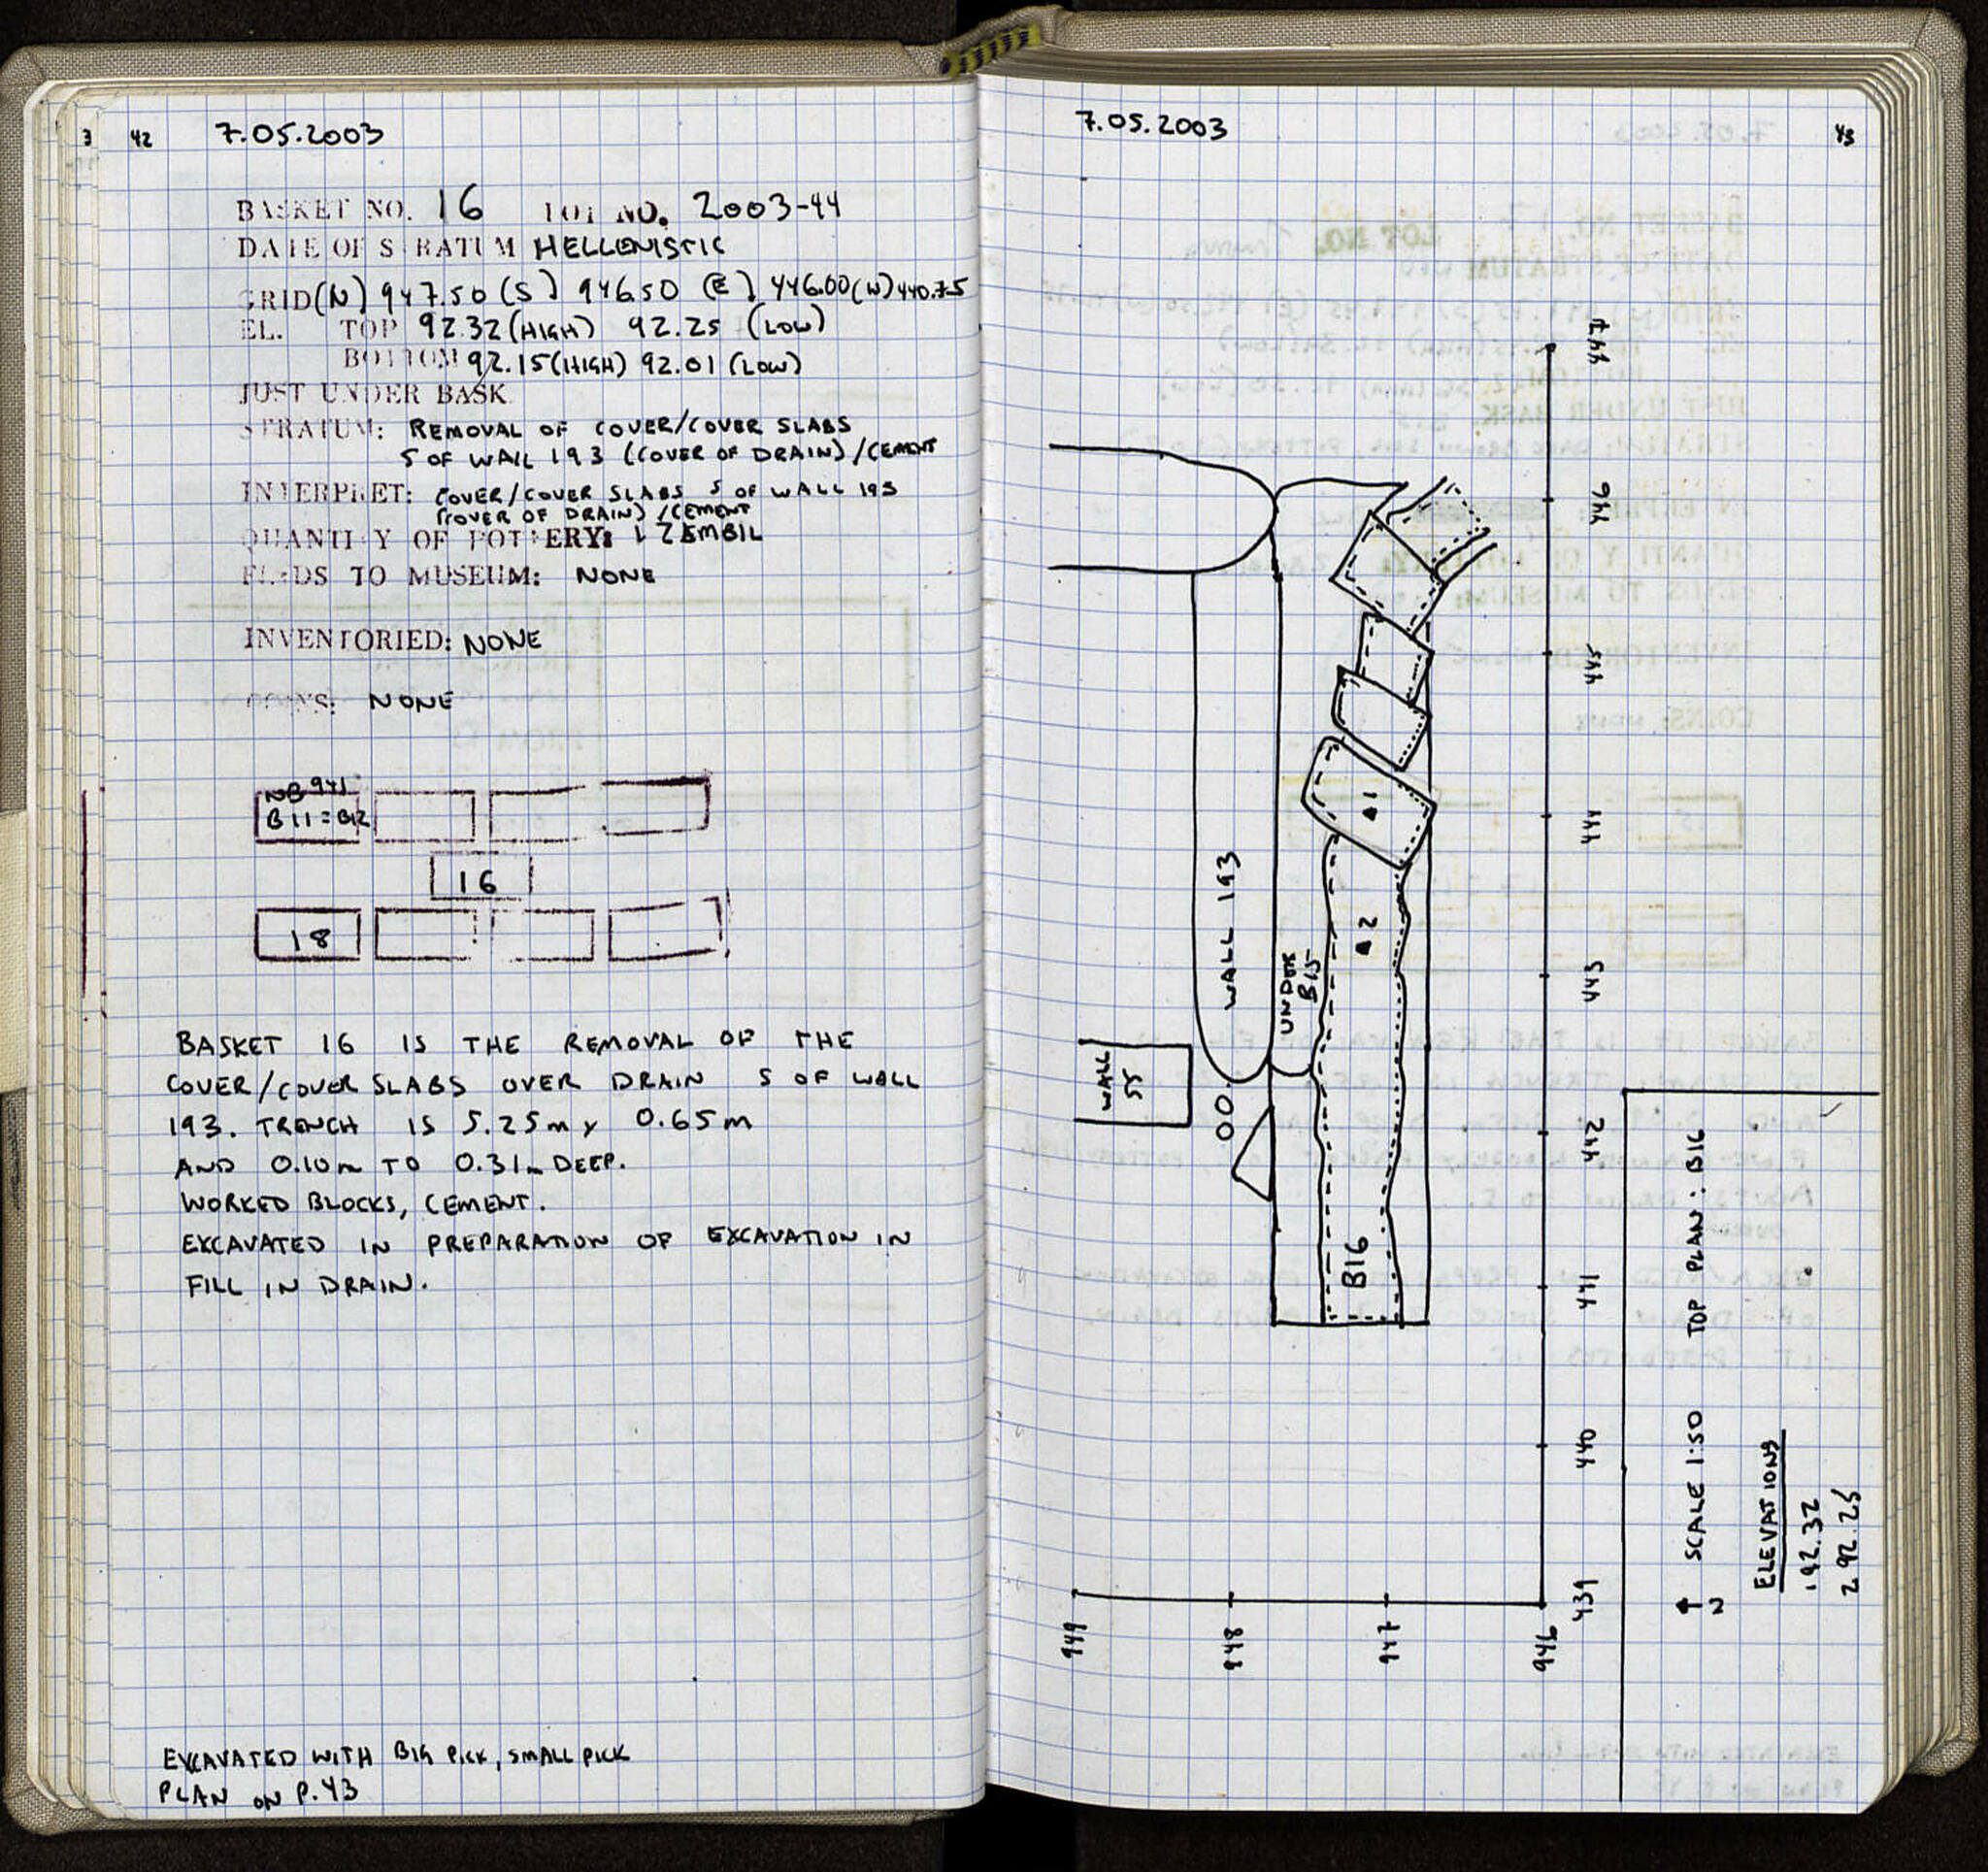 3 42 7.05.2003
BASKET NO. 16 LOT NO. 2003-44
DATE OF STRATUM HELLENISTIC
GRID (N) 947.50 (S) 946.50 (E) 446.00 (W) 440.75
EL. TOP 92.32 (HIGH) 92.25 (LOW)
BOTTOM 92.15 (HIGH) 92.01 (LOW)
JUST UNDER BASK
STRATUM: REMOVAL OF COVER/COVER SLABS
S OF WALL 193 (COVER OF DRAIN) / CEMENT
INTERPRET: COVER/COVER SLABS S OF WALL 193
(COVER OF DRAIN) / CEMENT
QUANTITY OF POTTERY: 1 ZEMBIL
FINDS TO MUSEUM: NONE
INVENTORIED: NONE
COINS: NONE
NB 941
B11=B12
16
18
BASKET 16 IS THE REMOVAL OF THE
COVER/COVER SLABS OVER DRAIN S OF WALL
193. TRENCH IS 5.25m x 0.65m
AND 0.10m TO 0.31m DEEP.
WORKED BLOCKS, CEMENT.
EXCAVATED IN PREPARATION OF EXCAVATION IN
FILL IN DRAIN.
EXCAVATED WITH BIG PICK, SMALL PICK
PLAN ON P. 43
7.05.2003 43
447
446
445
444
443
442
441
440
439
949
948
947
946
WALL 193
WALL
55
UNDER
B15
1
2
B16
TOP PLAN: B16
SCALE 1:50
N
ELEVATIONS
1 92.32
2 92.25